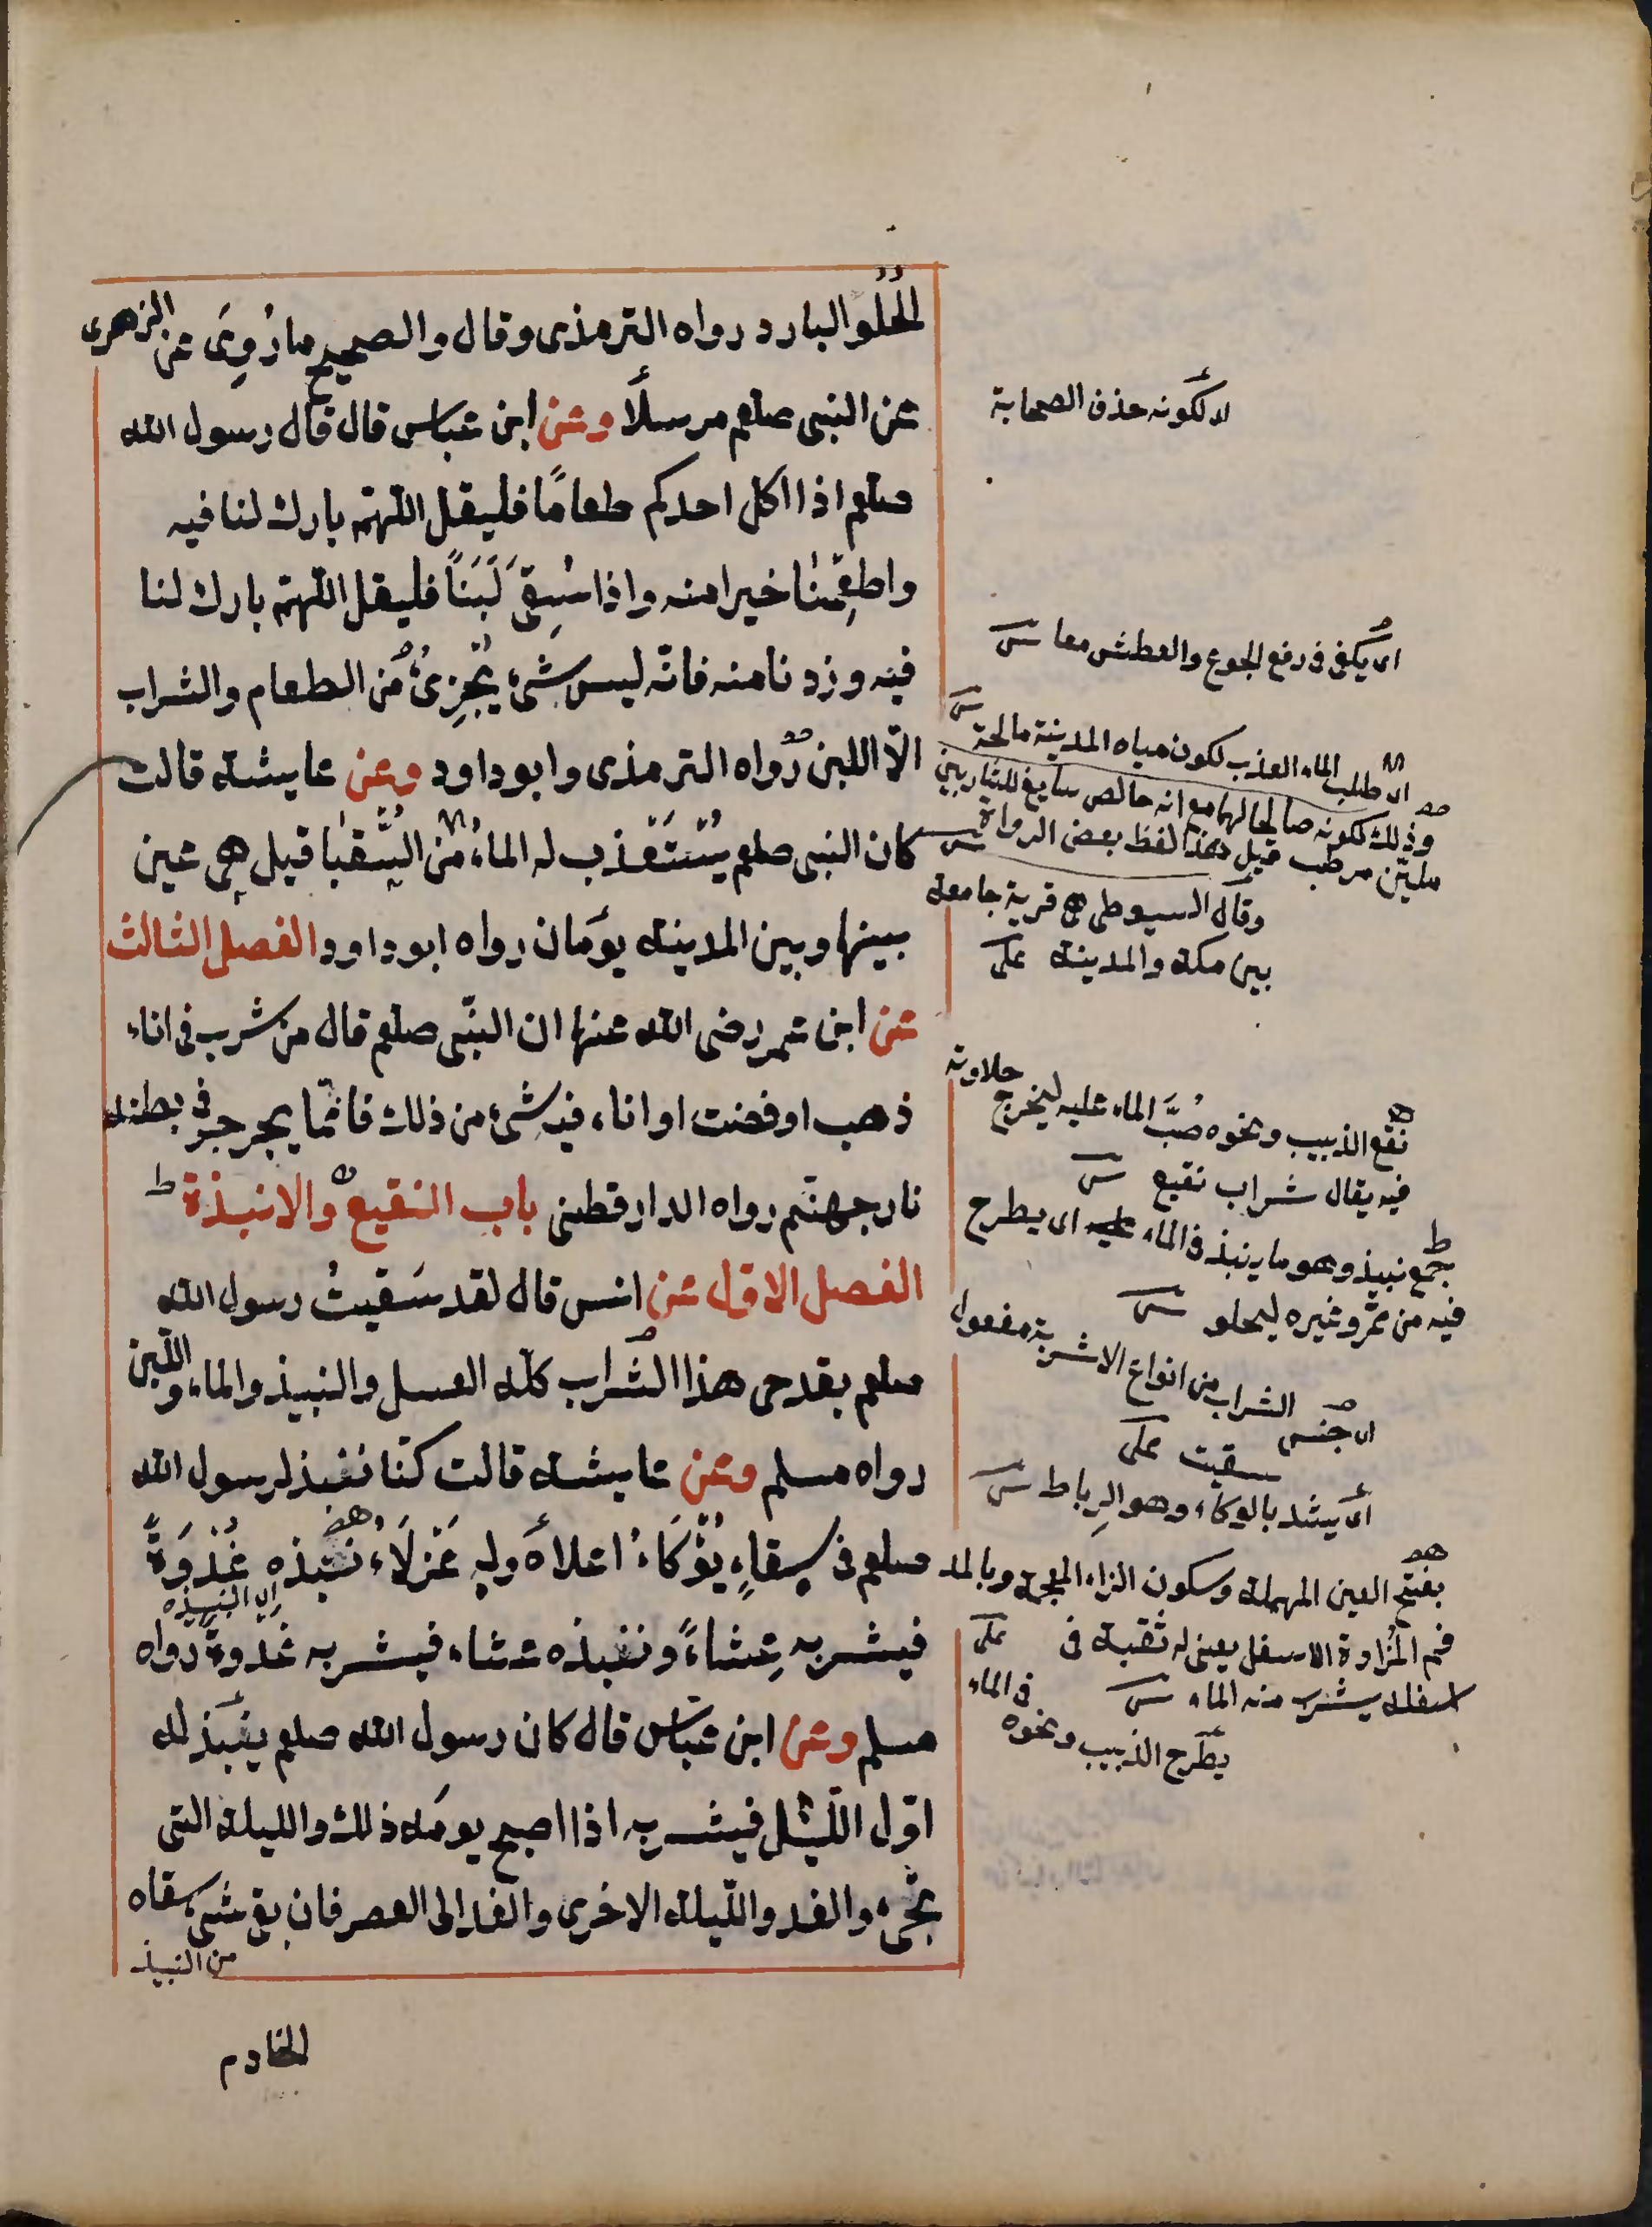 الحُلْو البارد رواه الترمذى وقال والصحيح ما رُوِىَ عن الزهرى
عن النبى صلعم مرسلًا وعن ابن عباس قال قال رسول الله
صلعم اذا اكل احدكم طعامًا فليقل اللّهمّ بارك لنا فيه
واطعِمْنا خيرا منه واذا سُقِىَ لَبَنًا فليقل اللّهمّ بارك لنا
فيه وزدنا منه فانّه ليس شئ يُجْزِئُ من الطعام والشراب
الّا اللبن رواه الترمذى وابو داود وعن عايشة قالت
كان النبى صلعم يُسْتَعْذَب له الماءُ من السُّقْيا قيل هى عين
بينها وبين المدينة يومَان رواه ابو داود الفصل الثالث
عن ابن عمر رضى الله عنها ان النبّى صلعم قال من شرب فى اناء
ذهب او فضت او اناء فيه شئ من ذلك فانّما يجرجر فى بطنه
نار جهنّم رواه الدارقطنى باب النقيع والانبذة ط
الفصل الاول عن انس قال لقد سَقيتُ رسول الله
صلعم بقدحى هذا الشّراب كلّه العسل والنبيذ والماء واللّبن
رواه مسلم وعن عايشة قالت كنّا ننبذ لرسول الله
صلعم فى سِقاءٍ يُؤْكَاءُ اعلاهَ وله عَزلَاءُ ننبذه غُدْوَةً
اى النبيذه
فيشربه عِشاءً وننبذه عشاء فيشربه غدوةً رواه
مسلم وعن ابن عبّاس قال كان رسول الله صلعم ينبَذ له
اوّل اللّيل فيشربه اذا اصبح يومَه ذلك والليلة التى
تجىء والغد واللّيلة الاخرى والغد الى العصر فان بقى شئ سقاه
من النبيذ
الخادم
لا لكونه حذف الصحابة
اى يكفى فى دفع الجوع والعطش معا
اى طلب الماء العذب لكون مياه المدينة مالحة
وذلك لكونه صالحا لهما مع انه خالص سايغ للشاربين
مليّن مرطب قيل هذا لفظ بعض الرواة
وقال السيوطى هى قرية جامعة
بين مكة والمدينة على
نقع الزبيب ونحوه صُبَّ الماء عليه ليخرج حلاوته
فيه يقال شراب نقيع
ط جمع نبيذ وهو ما ينبذ فى الماء عليه اى يطرح
فيه من تمر وغيره ليحلو
اى جنس الشراب من انواع الاشربة مفعول
سقيت على
اى يشد بالوكاء وهو الرِباط
بفتح العين المهملة وسكون الزاء المعجمة وبالمد
فم المزاوة الاسفل يعنى له ثقبة فى على
اسفله يشرب منه الماء
يطرح الزبيب ونحوه فى الماء